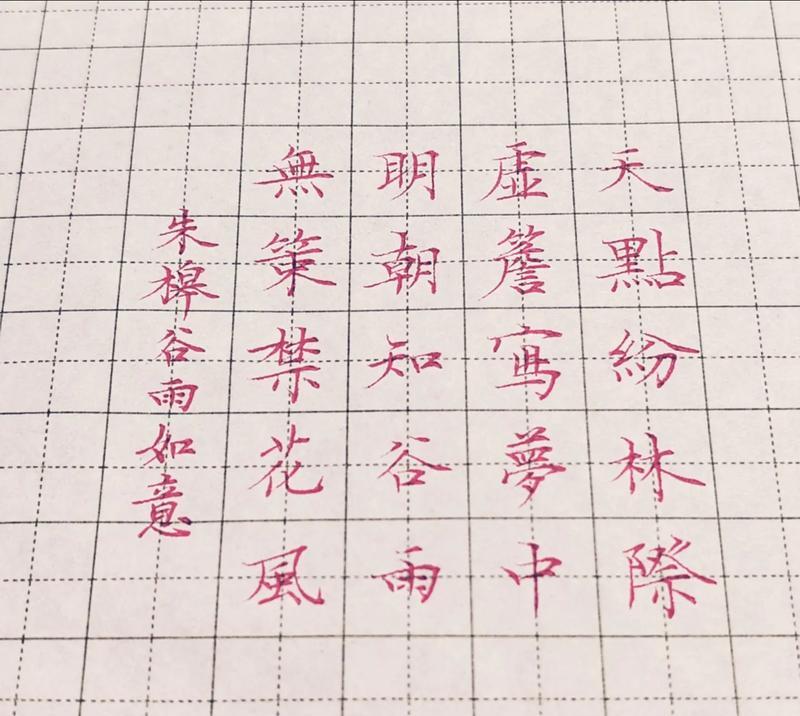 天點紛林際
虚簷寫夢中
明朝知谷雨
無策禁花風
朱槔谷雨如意